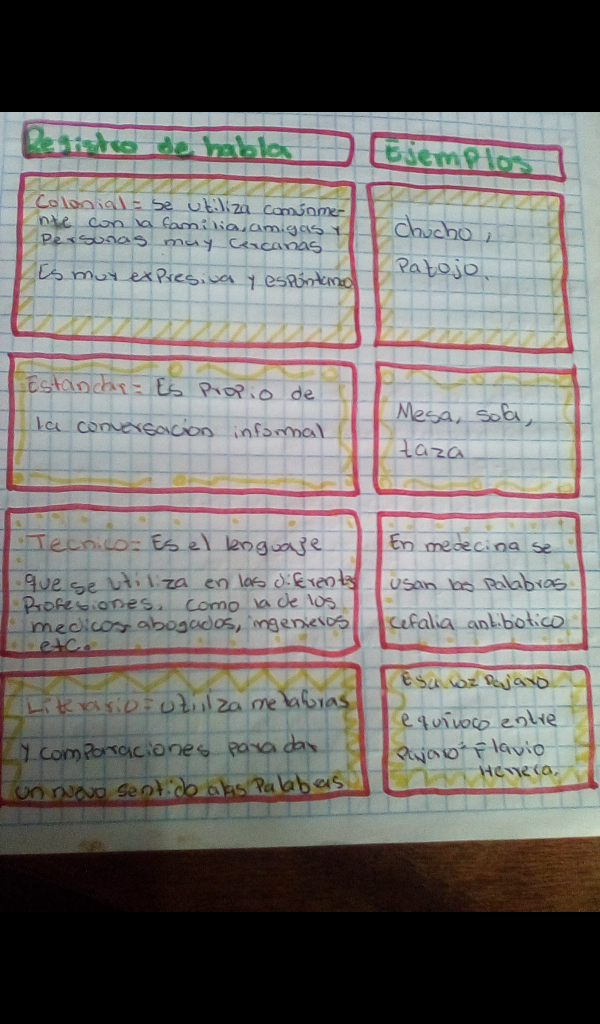 Registro de habla
Ejemplos
Colonial = se utiliza comúnme-
nte con la familia, amigas y
Personas muy cercanas
Es muy expresiva y espóntanao
chucho,
Patojo.
Estandar = Es Propio de
la conversación informal
Mesa, sofa,
taza
Tecnico = Es el lenguaje
que se utiliza en las diferentes
Profesiones, como la de los
medicos abogados, ingenieros
etc.
En medecina se
usan las Palabras
cefalia antibotico
Literario = utiilza metaforas
y comparaciones para dar
un nuevo sentido a las Palabras
Esa voz Pajaro
equivoco entre
Pajaro" Flavio
Herrera.